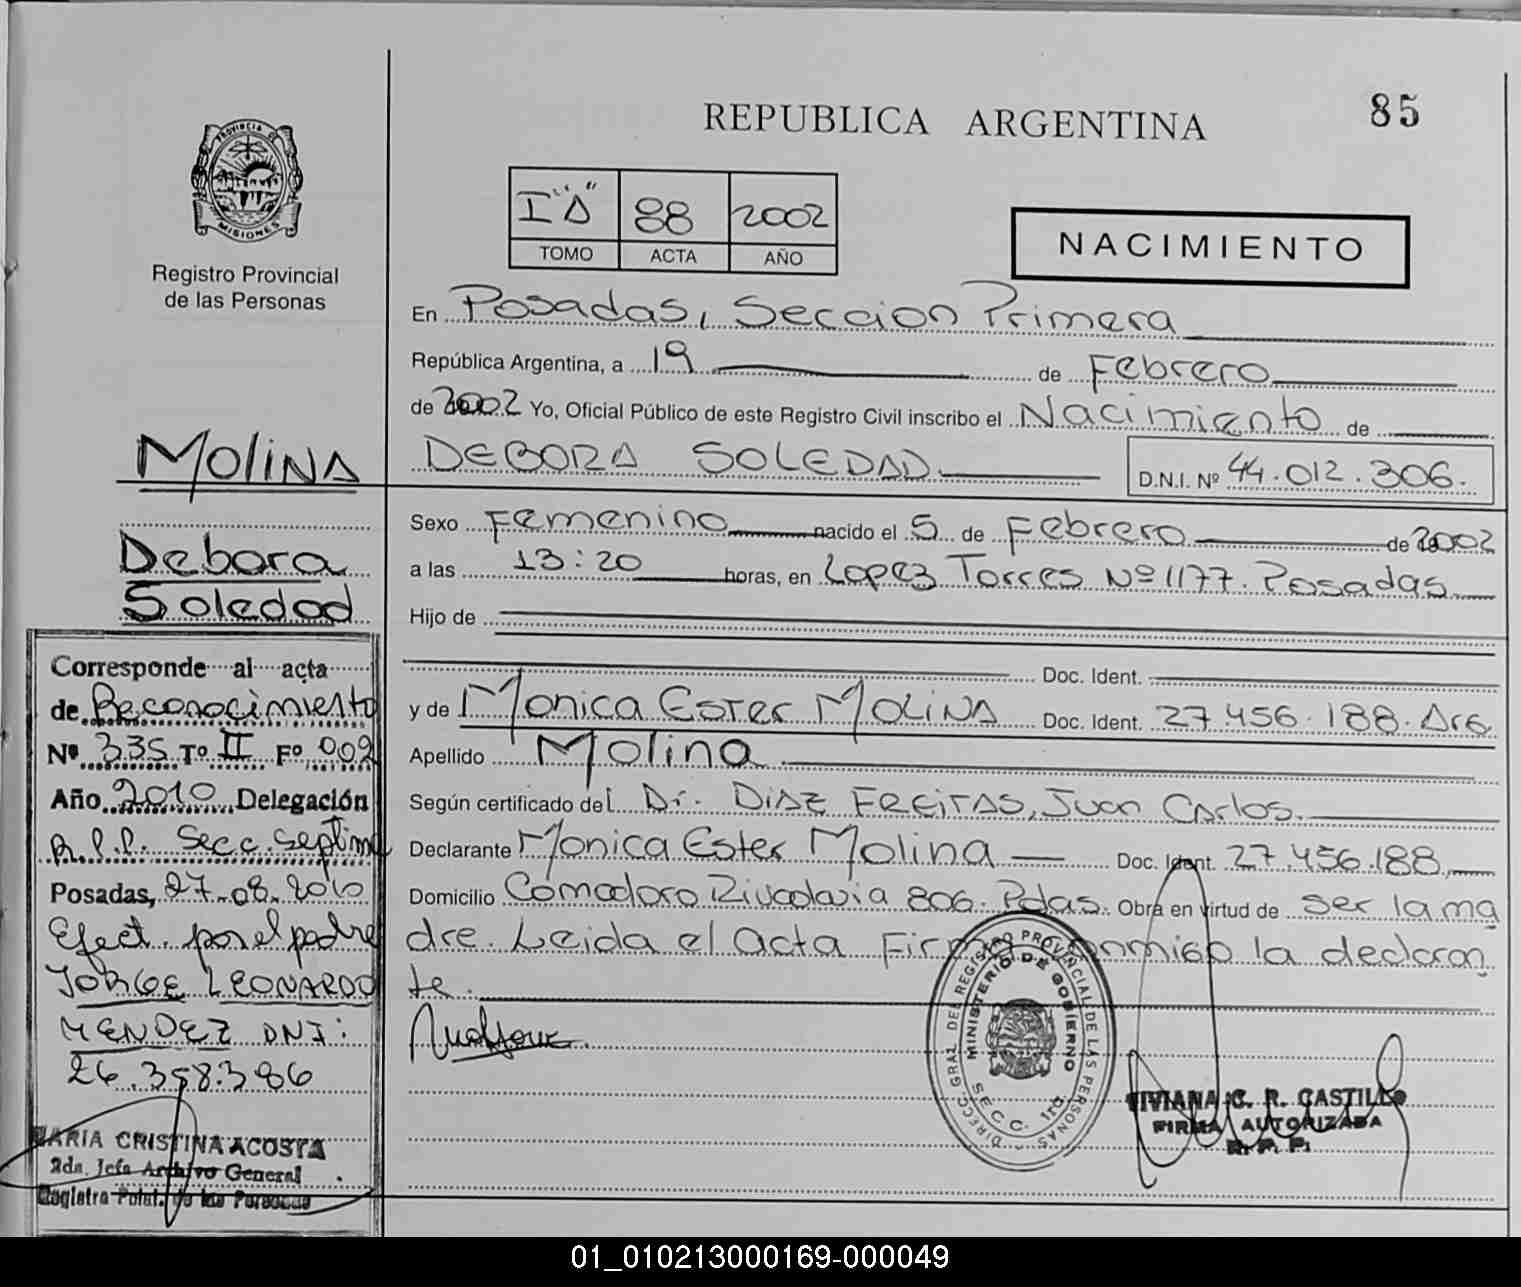 REPUBLICA ARGENTINA
85
PROVINCIA DE MISIONES
Registro Provincial
de las Personas
I "A" 88 2002
TOMO ACTA AÑO
NACIMIENTO
En Posadas, Seccion Primera
República Argentina, a 19 de Febrero
de 2002 Yo, Oficial Público de este Registro Civil inscribo el Nacimiento de
DEBORA SOLEDAD D.N.I. Nº 44.012.306.
Sexo Femenino nacido el 5 de Febrero de 2002
a las 13:20 horas, en Lopez Torres Nº 1177. Posadas
Hijo de
Doc. Ident.
y de Monica Ester MOLINA Doc. Ident. 27.456.188. Arg
Apellido Molina
Según certificado del Dr. DIAZ FREITAS, Juan Carlos.
Declarante Monica Ester Molina Doc. Ident. 27.456.188
Domicilio Comodoro Rivadavia 806. Pdas. Obra en virtud de ser la ma
dre. Leida el acta Firma conmigo la declaran
te.
MOLINA
Debora
Soledad
Corresponde al acta
de Reconocimiento
Nº 335 Tº II Fº 009
Año 2010 Delegación
R.P.P. Secc. Septima
Posadas, 27-08-2010
Efect. por el padre
JORGE LEONARDO
MENDEZ DNI:
26.358.386
MARIA CRISTINA ACOSTA
2da. Jefa Archivo General
Registro Pcial. de las Personas
DIRECC. GRAL. DEL REGISTRO PROVINCIAL DE LAS PERSONAS
MINISTERIO DE GOBIERNO
SECC. 1ra.
VIVIANA C. R. CASTILLO
FIRMA AUTORIZADA
R. P. P.
01_010213000169-000049